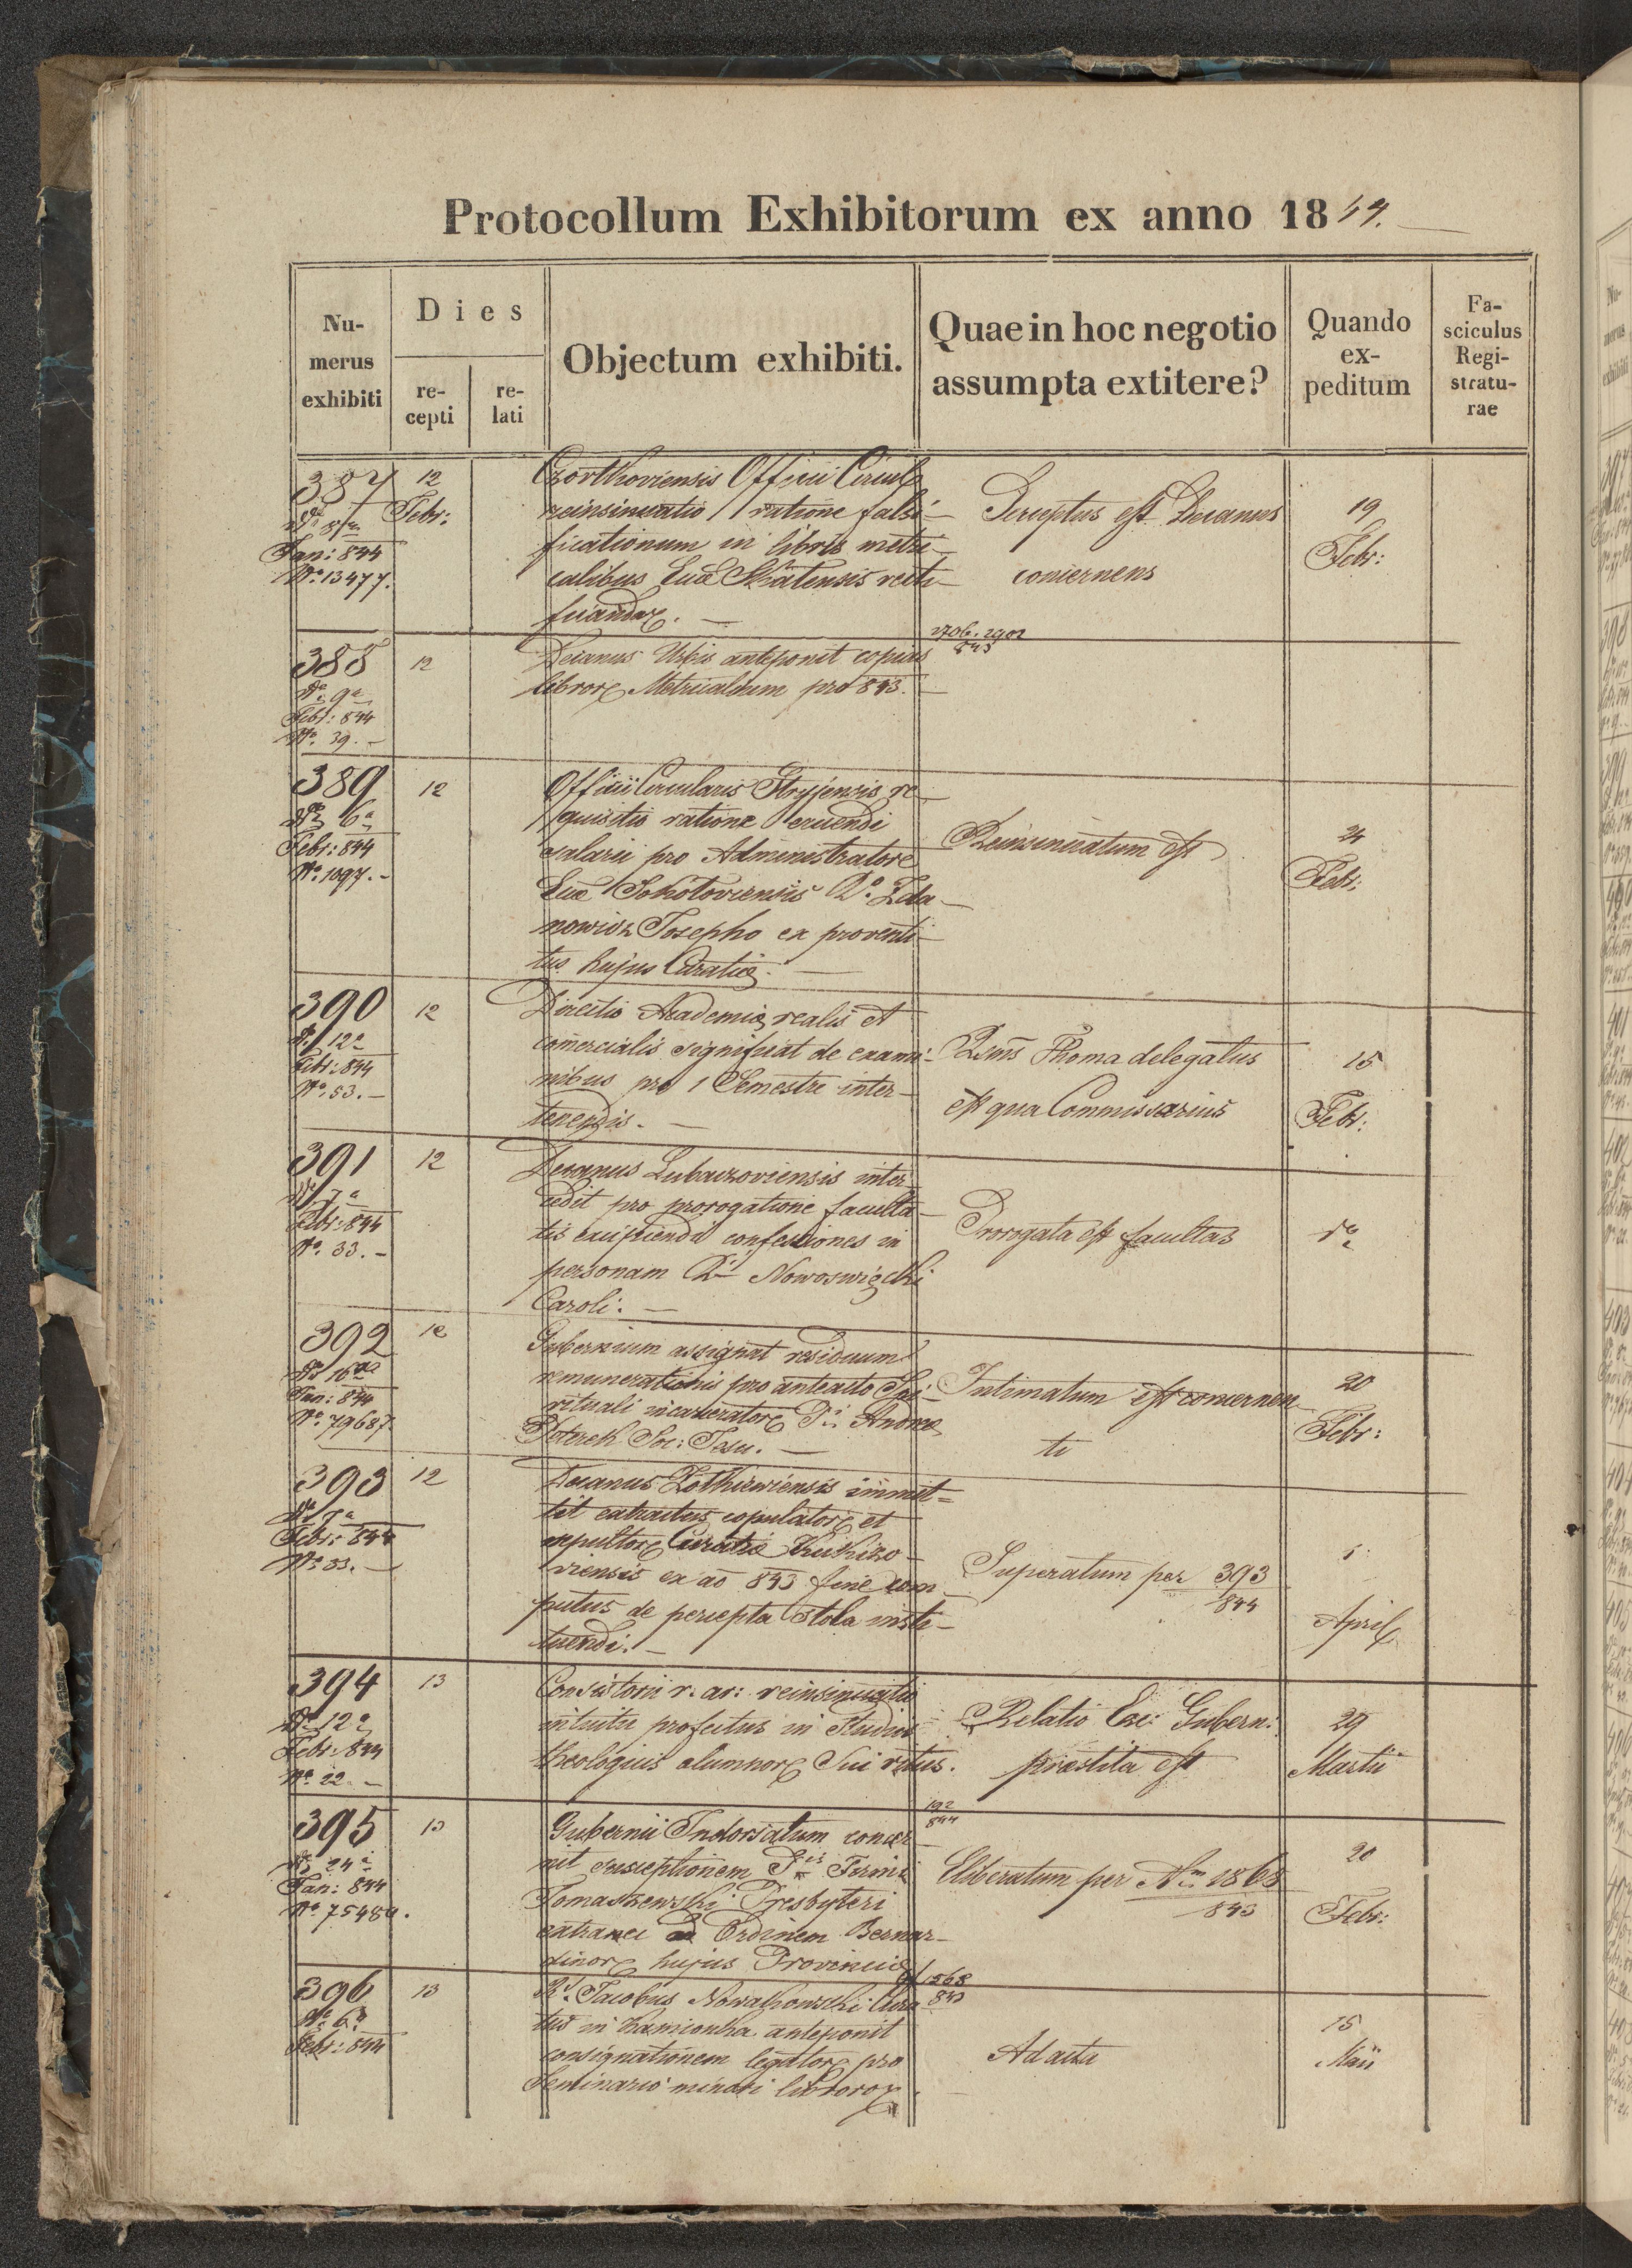 Protocollum Exhibitorum ex anno 1844.
Nu-
merus
exhibiti
Dies
re-
cepti
re-
lati
Objectum exhibiti.
Quae in hoc negotio
assumpta extitere?
Quando
ex-
peditum
Fa-
sciculus
Regi-
stratu-
rae
387
Jan: 844
No. 13477.
12
Febr:
Czortkoviensis Officii Circul
reinsinuatio ratione falsi-
ficationum in libris metri-
calibus Euae Skałensis recti-
ficandar.
Perceptus est Decanus
concernens
19
Febr:
388
9a
Febr: 844
No. 39.-
12
Decanus Urbis anteponit copias
libror Metricalium pro 843.
2706. 2902
843
389
6a
Febr: 844
No. 1097.-
12
Officii Circularis Stryjensis re-
quisitio ratione eruendi
salarii pro Administratore
Euae Sokołoviensis Do. Zda-
nowicz Josepho ex proventi-
tus hujus Curatiae.
Reinsinuatum est
24
Febr:
390
12a
Febr: 844
No. 53.-
12
Directio Academiae realis et
comercialis significat de exami-
nibus pro 1 Semestre inter-
tenendis.
Rsms Thoma delegatus
est qua Commissarius
15
Febr:
391
7a
Febr: 844
No. 33.-
12
Decanus Lubaczoviensis inter-
cedit pro prorogatione faculta-
tis excipiendi confessiones in
personam Nowoswięcki
Caroli.
Prorogata est facultas
392
16a
Jan: 844
No. 79687.
12
Gubernium assignat residuum
remunerationis pro anteacto Spi-
rituali incarcerator Andrea
Peterek Soc: Jesu.
Intimatum est concernen
ti
20
Febr:
393
7a
Febr: 844
No. 33.-
12
Decanus Zołkiewiensis immit-
tit extractus copulator et
sepultor Curatiae Kukizo-
viensis ex ao 843 fine com
putus de percepta Stola insti-
tuendi.
Superatum per 393
844
April
394
12a
Febr: 844
No. 22.-
13
Consistorii r. ar: reinsinuatio
intuitu profectus in Studiis
theologicis alumnor Sui ritus.
Relatio Exc: Gubern:
praestita est
29
Martii
395
24a
Jan: 844
No. 75480.
13
Gubernii Indorsatum concer
nit susceptionem Firmi
Tomaszewski Presbyteri
extranei ad Ordinem Bernar-
dinor hujus Provinciae
192
844
Elaboratum per Nm 1868
843
20
Febr:
396
6a
Febr: 844
13
Jacobus Nowakowski Cura
tus in Kamionka anteponit
consignationem legator pro
Seminario minori libroror
1568
843
Ad acta
15
Maii